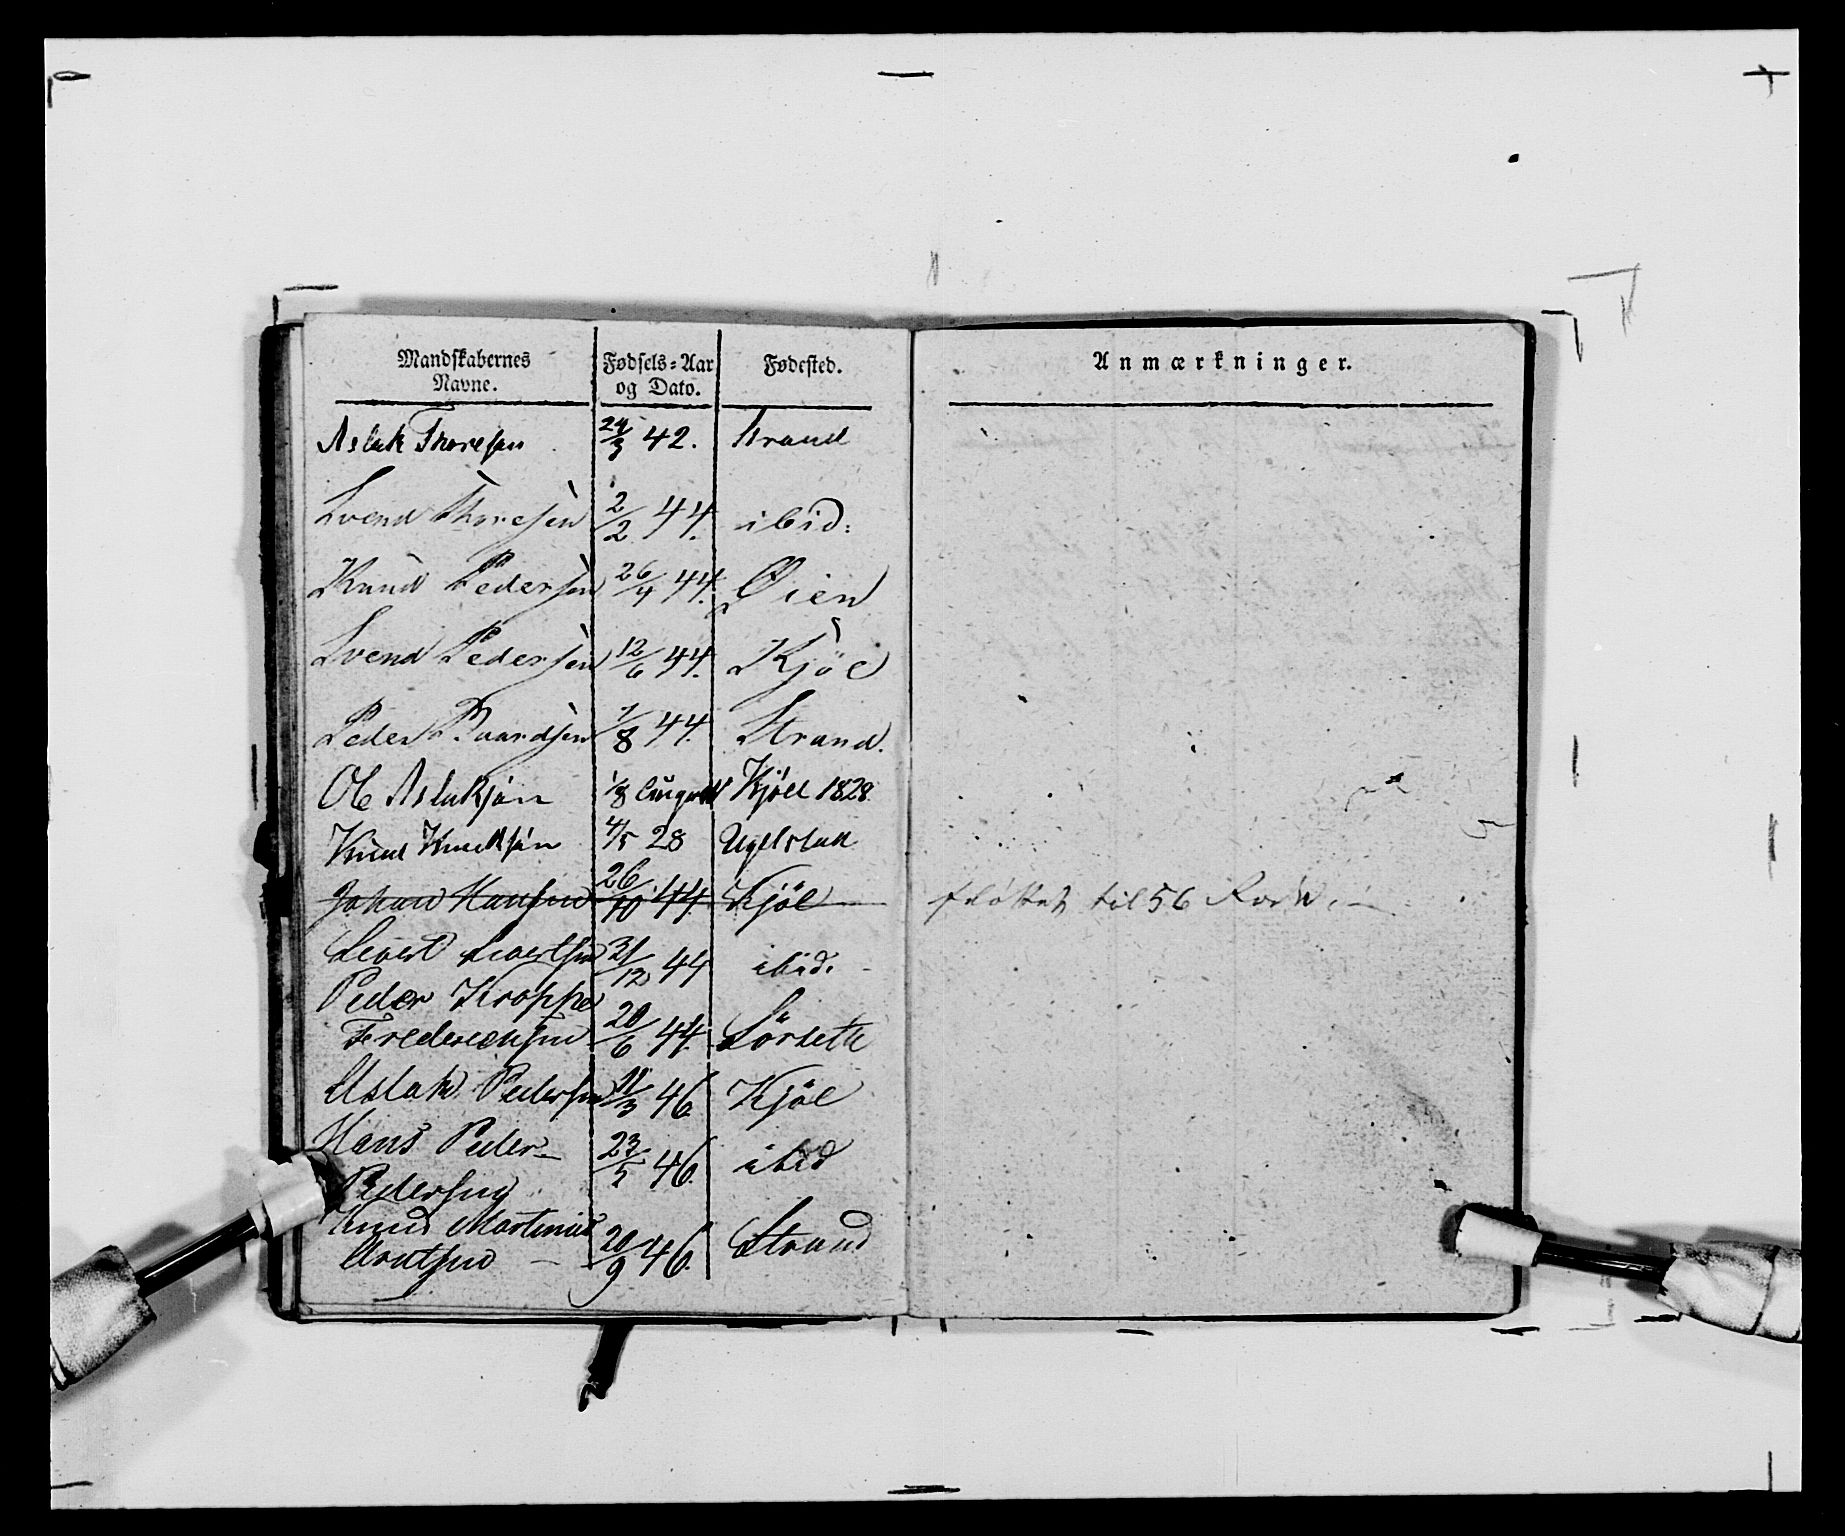 Mandskabernes Navne. Fødsels=Aar og Dato. Fødested. Anmærkninger.
Aslak Thoresen 24/3 42. Strand
Svend Thoresen 2/2 44. ibid:
Knud Pedersen 26/4 44. Øien
Svend Pedersen 12/6 44. Kjöl
Peder Baardsen 1/8 44. Strand.
Ole Aslaksøn 1/8 Kjöll 1828.
Knud Knudsøn 4/5 28 Ugelstad
Johan Hansen 26/10 44. Kjöl fløttet til 56 Rode
Sivert Sivertsen 31/12 44 ibid.
Peder Kroppe
Fredericksen 20/6 44. Sörseth
Aslak Pedersen 11/3 46. Kjöl
Hans Peder
Pedersen 23/5 46. ibid
Knud Martinius
Arntsen 20/9 46. Strand